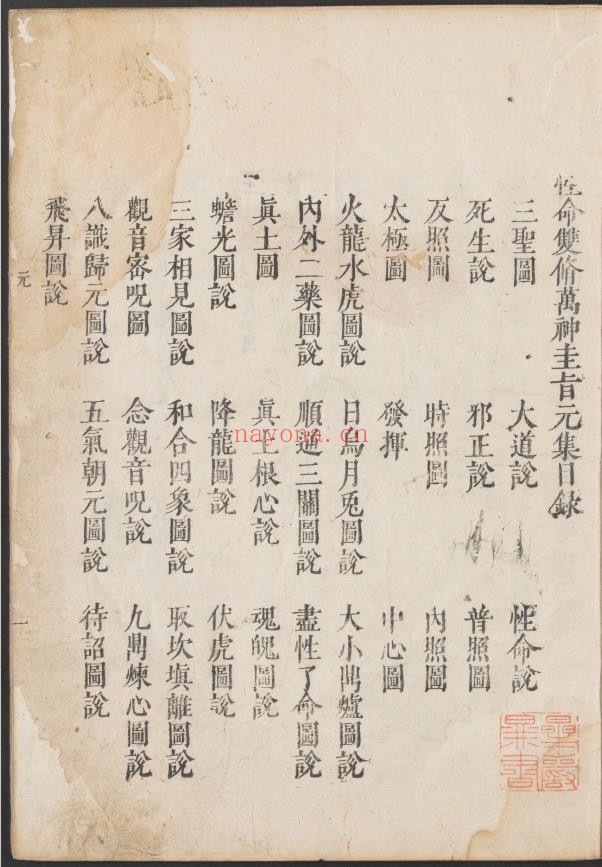 性命雙脩萬神圭旨元集目錄
三聖圖 大道說 性命說
死生說 邪正說 普照圖
反照圖 時照圖 內照圖
太極圖 發揮 中心圖
火龍水虎圖說 日烏月兎圖說 大小鼎爐圖說
內外二藥圖說 順逆三關圖說 盡性了命圖說
眞土圖 眞土根心說 魂魄圖說
蟾光圖說 降龍圖說 伏虎圖說
三家相見圖說 和合四象圖說 取坎塡離圖說
觀音密呪圖 念觀音呪說 九鼎煉心圖說
八識歸元圖說 五氣朝元圖說 待詔圖說
飛昇圖說
元
一
nayona.cn